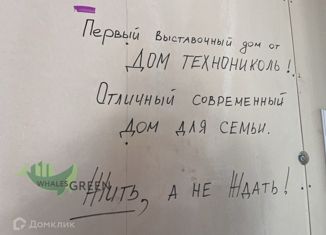 Первый выставочный дом от
Дом Технониколь!
Отличный современный
Дом для семьи.
WHALES
GREEN
Жить, а не Ждать!
Домклик